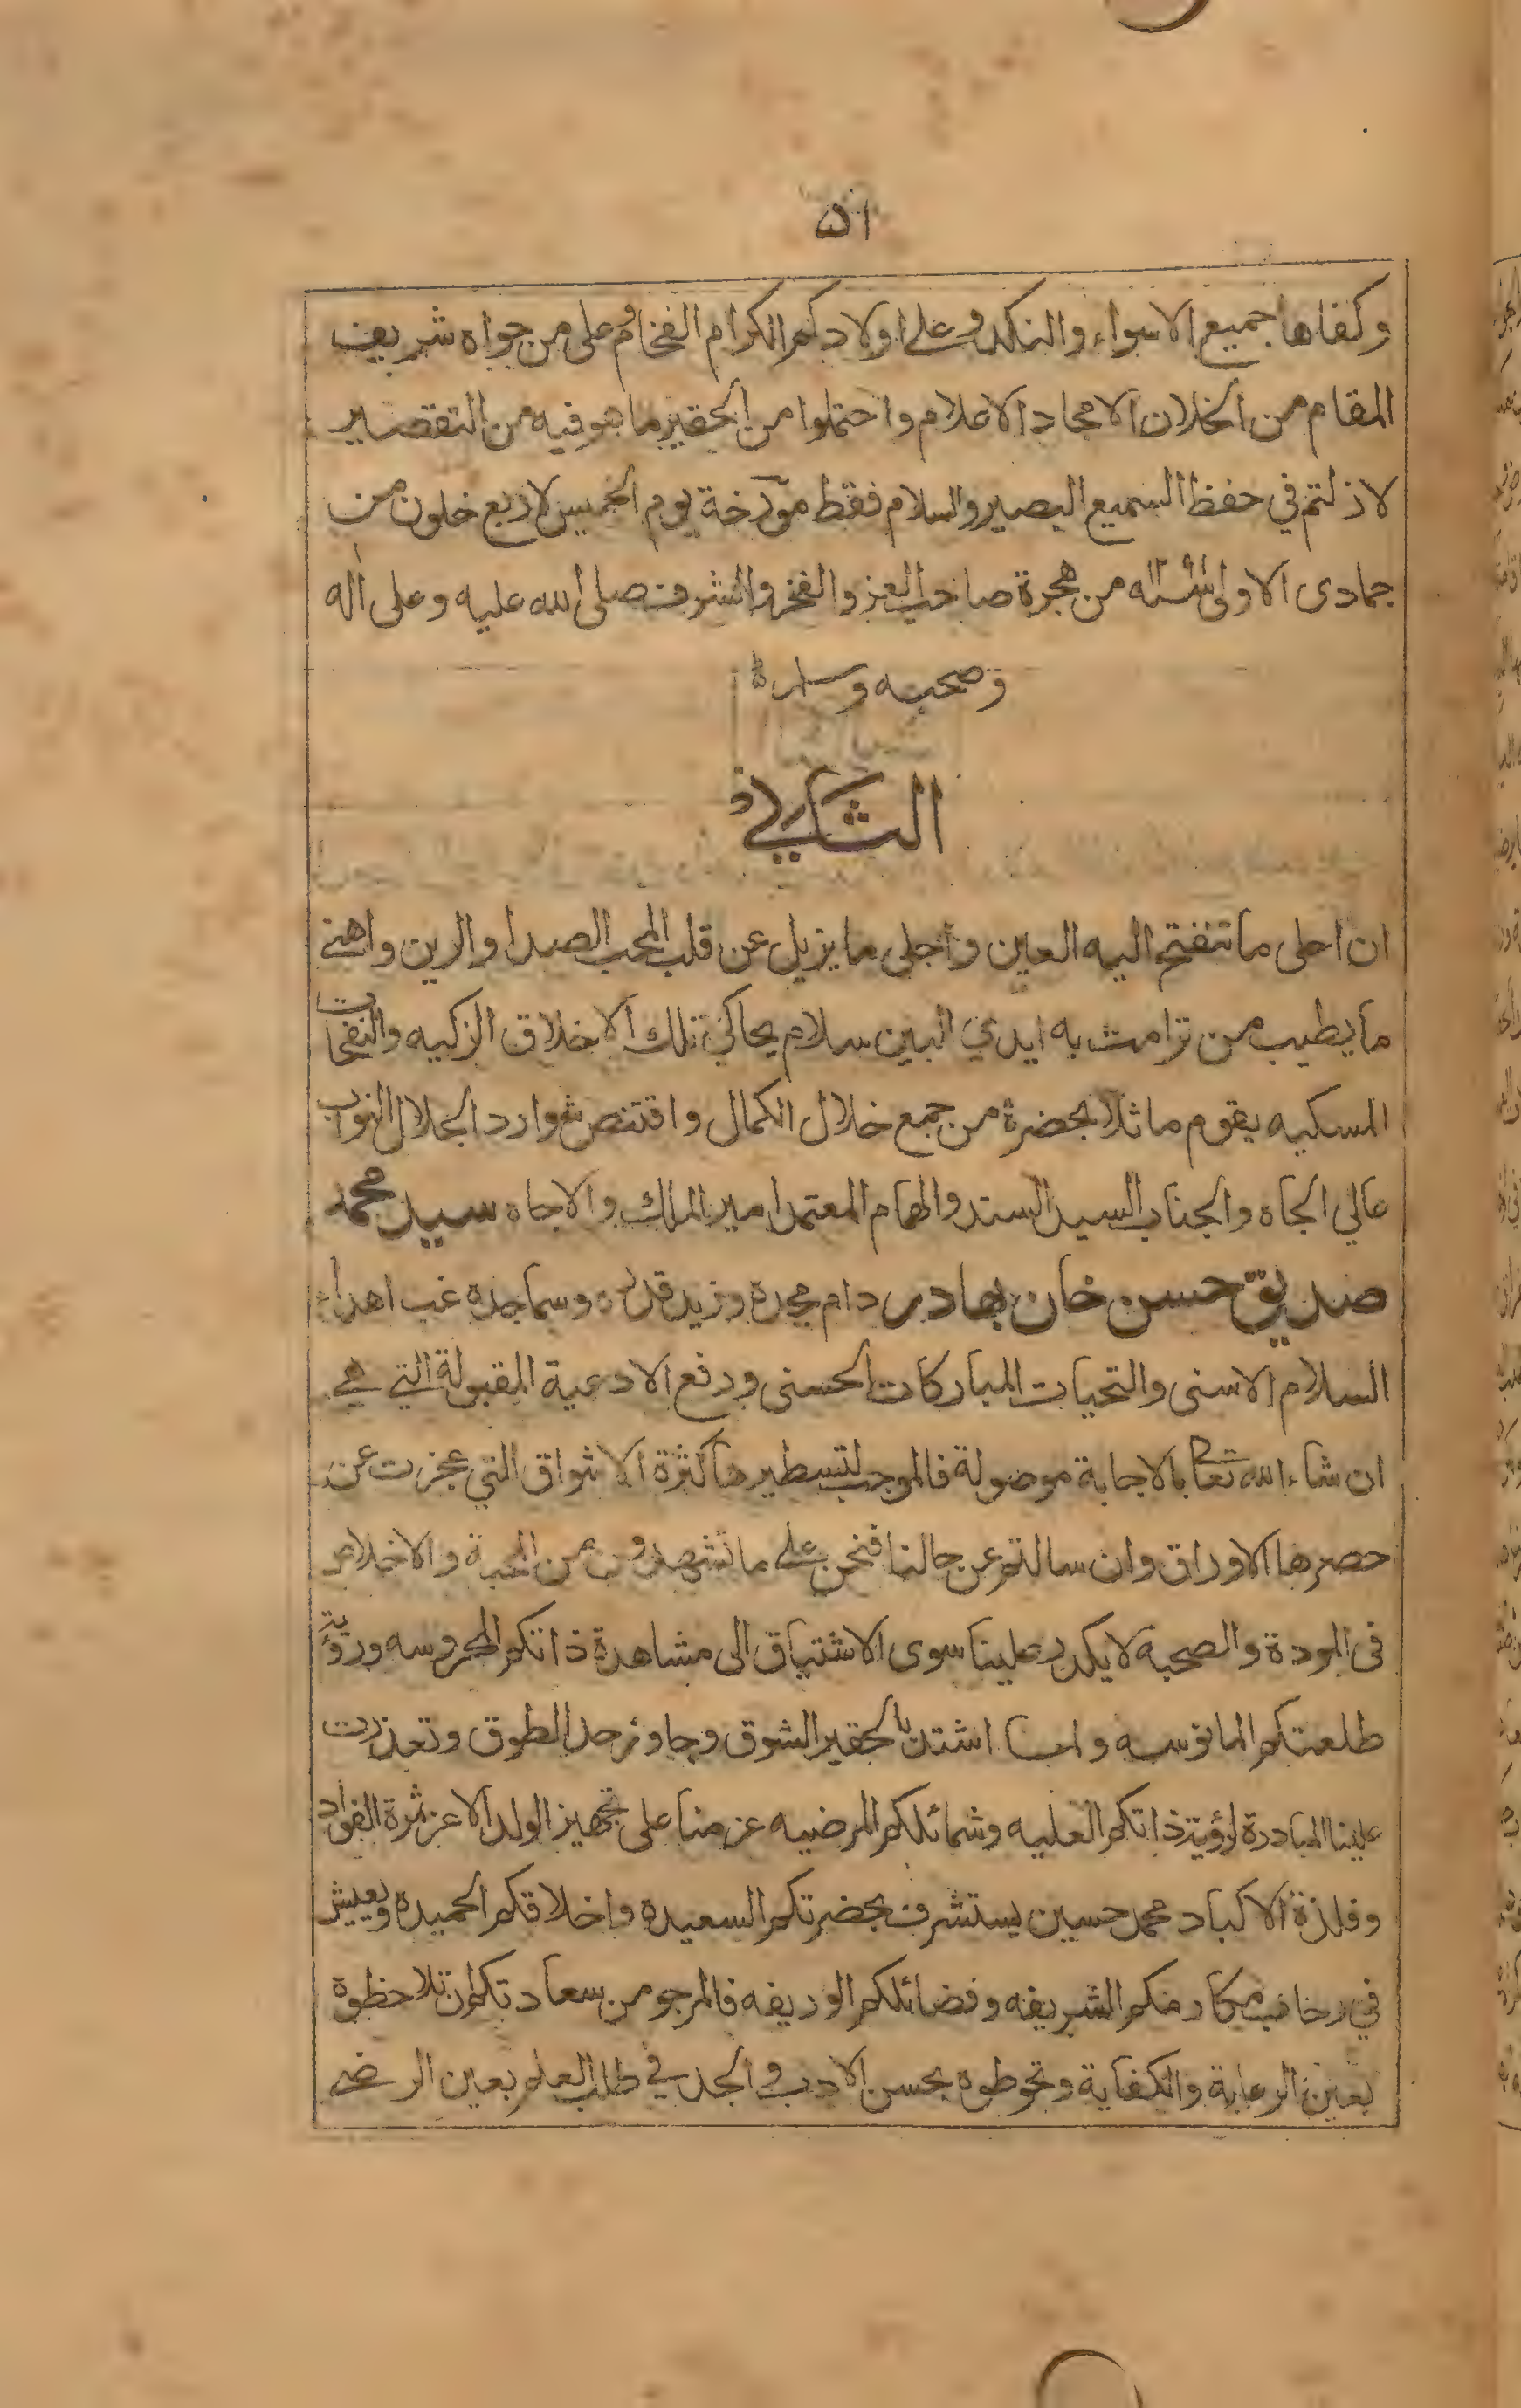 ۵۱
وكفاها جميع الاسواء والنكد وعلى اولادكم الكرام الفخام وعلى من حواه شريف
المقام من الخلان الامجاد الاعلام واحتملوا من الحقير ما هو فيه من التقصير
لازلتم في حفظ السميع البصير والسلام فقط مؤرخة يوم الخميس لاربع خلون من
جمادى الاولى من هجرة صاحب العز والفخر والشرف صلى الله عليه وعلى اله
وصحبه وسلم
الثاني
ان احلى ما تنفتح اليه العين واجلى ما يزيل عن قلب المحب الصدا والرين واهنى
ما يطيب من ترامت به ايدي البين سلام يحاكي تلك الاخلاق الزكيه والنفحات
المسكيه يقوم ماثلا بحضرة من جمع خلال الكمال واقتنص شوارد الجلال النواب
عالي الجاه والجناب السيد السند والهمام المعتمد امير الملك والاجاه سيد محمد
صديق حسن خان بهادر دام مجده وزيد قدره وسما جده غب اهداء
السلام الاسنى والتحيات المباركات الحسنى ورفع الادعية المقبولة التي هي
ان شاء الله تعا بالاجابة موصولة فالموجب لتسطيرها كثرة الاشواق التي عجزت عن
حصرها الاوراق وان سالتم عن حالنا فنحن على ما تشهدون من المحبة والاخلاص
فى المودة والصحبه لا يكدر علينا سوى الاشتياق الى مشاهدة ذاتكم المحروسه ورؤية
طلعتكم المانوسه ولما اشتد بالحقير الشوق وجاوز حد الطوق وتعذرت
علينا المبادرة لرؤية ذاتكم العليه وشمائلكم المرضيه عزمنا على تجهيز الولد الاعز ثمرة الفواد
وفلذة الاكباد محمد حسين يستشرف بحضرتكم السعيده واخلاقكم الحميده ويعيش
في رحاب مكارمكم الشريفه وفضائلكم الوريفه فالمرجو من سعادتكم ان تلاحظوه
بعين الرعاية والكفاية وتحوطوه بحسن الادب والجد في طلب العلم بعين الرضى